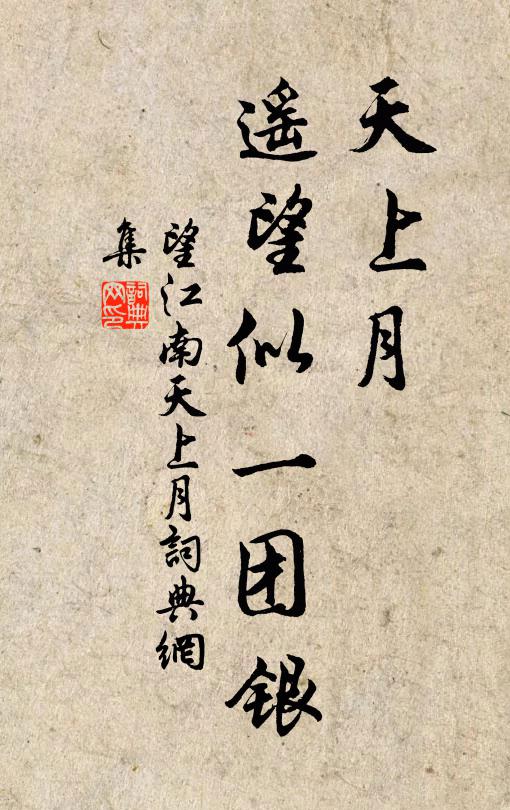 天上月
遥望似一团银
望江南天上月詞典網
集
詞典
网印